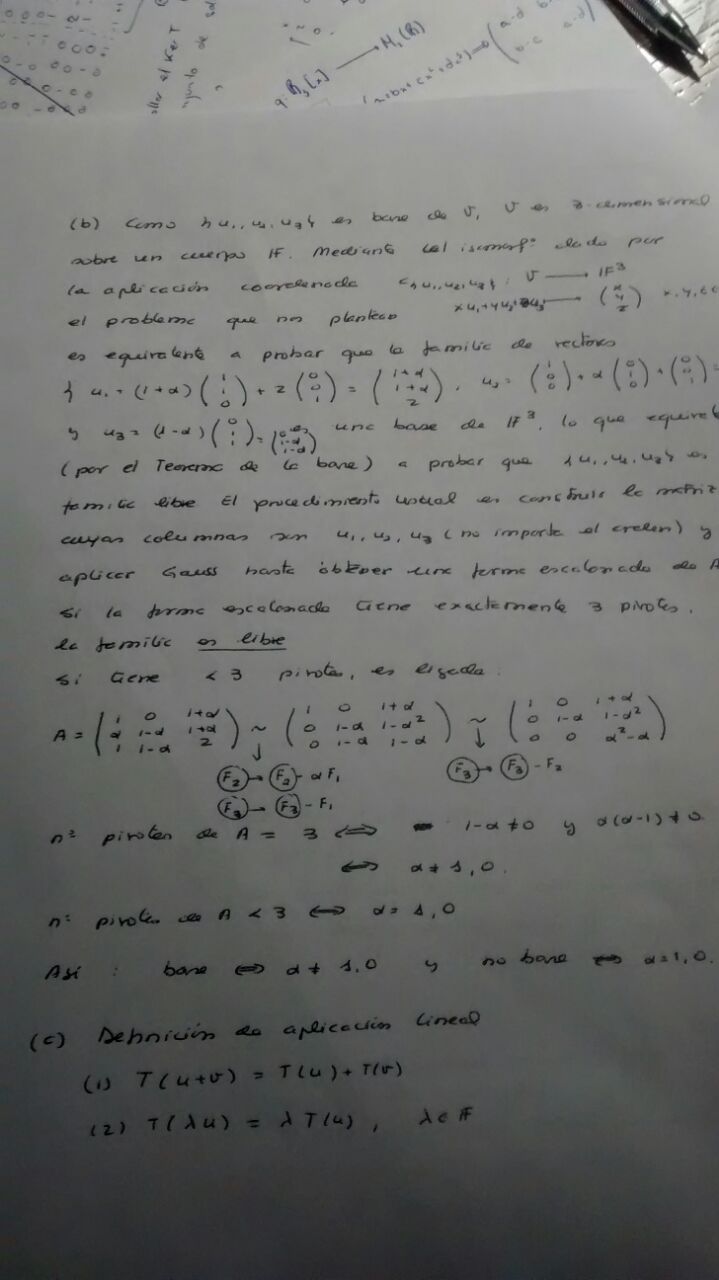 φ: R₃[x] ⟶ M₂(R)
(b) Como {u₁, u₂, u₃} es base de V, V es 3-dimensional
sobre un cuerpo IF. Mediante el isomorf⁰ dado por
la aplicación coordenada C{u₁,u₂,u₃} : V ⟶ IF³
xu₁+yu₂+zu₃ ⟶ (x y z)
el problema que nos plantean
es equivalente a probar que la familia de vectores
{ u₁ = (1+α) (1 1 0) + 2 (0 0 1) = (1+α 1+α 2), u₂ = (1 0 0) + α (0 1 0) + (0 0 1) =
y u₃ = (1-α) (0 1 1) = (0 1-α 1-α) es una base de IF³, lo que equivale
(por el Teorema de la base) a probar que {u₁, u₂, u₃} es
familia libre El procedimiento usual es construir la matriz
cuyas columnas son u₁, u₂, u₃ (no importa el orden) y
aplicar Gauss hasta obtener una forma escalonada de A
Si la forma escalonada tiene exactamente 3 pivotes,
la familia es libre
Si tiene < 3 pivotes, es ligada:
A = (1 0 1+α; α 1-α 1+α; 1 1-α 2) ~ (1 0 1+α; 0 1-α 1-α²; 0 1-α 1-α) ~ (1 0 1+α; 0 1-α 1-α²; 0 0 α²-α)
F₂ → F₂ - αF₁ F₃ → F₃ - F₂
F₃ → F₃ - F₁
nº pivotes de A = 3 ⟺ 1-α≠0 y α(α-1)≠0
⟺ α≠1,0.
nº pivotes de A < 3 ⟺ α=1,0
Así : base ⟺ α≠1,0 y no base ⟺ α=1,0.
(c) Definición de aplicación lineal
(1) T(u+v) = T(u)+T(v)
(2) T(λu) = λT(u), λ∈IF